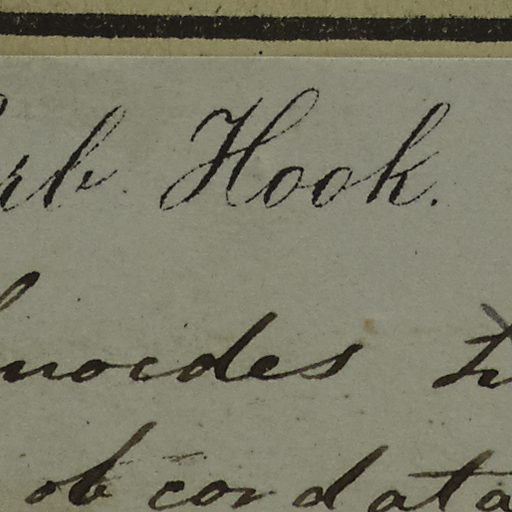 rb. Hook.
noides
obcordata